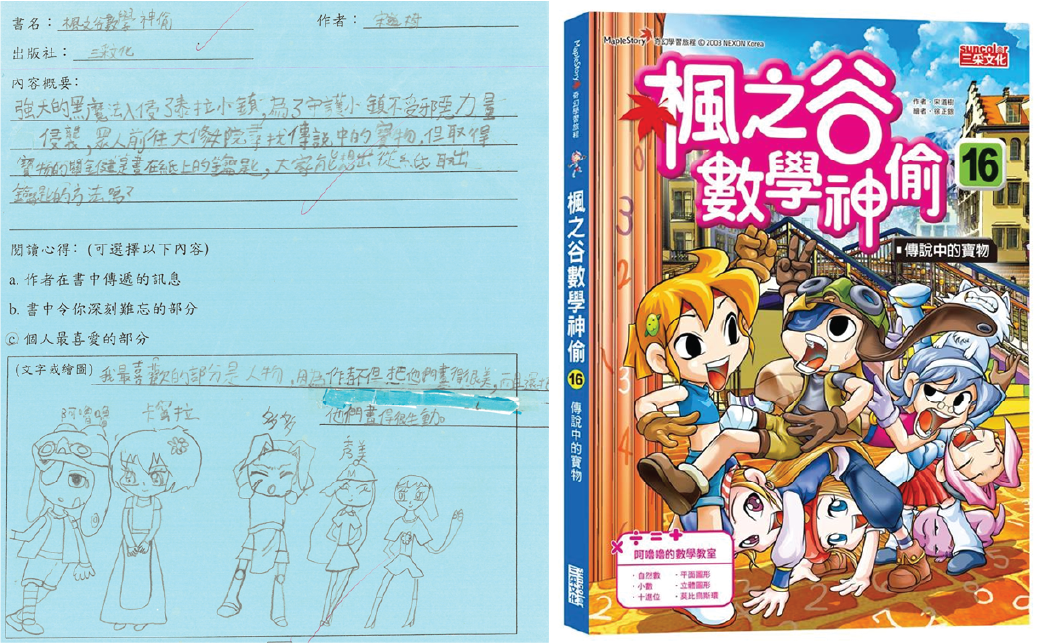 書名：楓之谷數學神偷
作者：宋道樹
出版社：三采文化
內容概要：
強大的黑魔法入侵了泰拉小鎮，為了守護小鎮不受邪惡力量
侵襲，眾人前往大修院尋找傳說中的寶物，但取得
寶物的關鍵是畫在紙上的鑰匙，大家能想出從紙取出
鑰匙的方法嗎？
閱讀心得：(可選擇以下內容)
a. 作者在書中傳遞的訊息
b. 書中令你深刻難忘的部分
c 個人最喜愛的部分
(文字或繪圖)
我最喜歡的部分是人物，因為作者不但把他們畫得很美，而且還把
他們畫得很生動。
阿嚕嚕
卡翁拉
多多
秀美
MapleStory 奇幻學習旅程 © 2003 NEXON Korea
suncolor
三采文化
作者．宋道樹
繪者．徐正銀
楓之谷
數學神偷
16
傳說中的寶物
MapleStory 奇幻學習旅程
楓之谷數學神偷
16
傳說中的寶物
suncolor
三采文化
阿嚕嚕的數學教室
．自然數 ．平面圖形
．小數 ．立體圖形
．十進位 ．莫比烏斯環